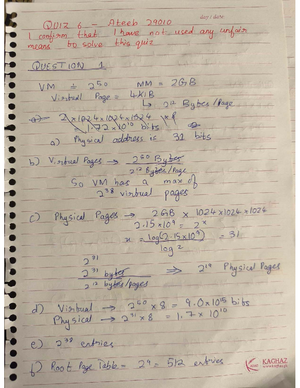 QUIZ 6 - Atneb 29010
I confirm that I have not used any unfair
means to solve this quiz
QUESTION 1
VM = 2^50 MM = 2GB
Virtual Page = 4KiB
a) Physical address is 31 bits
b) Virtual Pages → 2^50 Bytes
Bytes/Page
So VM has a max of
2^38 virtual pages
c) Physical Pages → 2GB × 1024×1024×1024
2.15×10^9 = 2^x
x = log(2.15×10^9) = 31
log 2
2^31
2^31 bytes ⇒ 2^19 Physical Pages
bytes/pages
d) Virtual → 2^50 × 8 = 9.0×10^15 bits
Physical → 2^31 × 8 = 1.7×10^10
e) 2^38 entries
f) Root Page Table = 2^9 = 512 entries
KAGHAZ